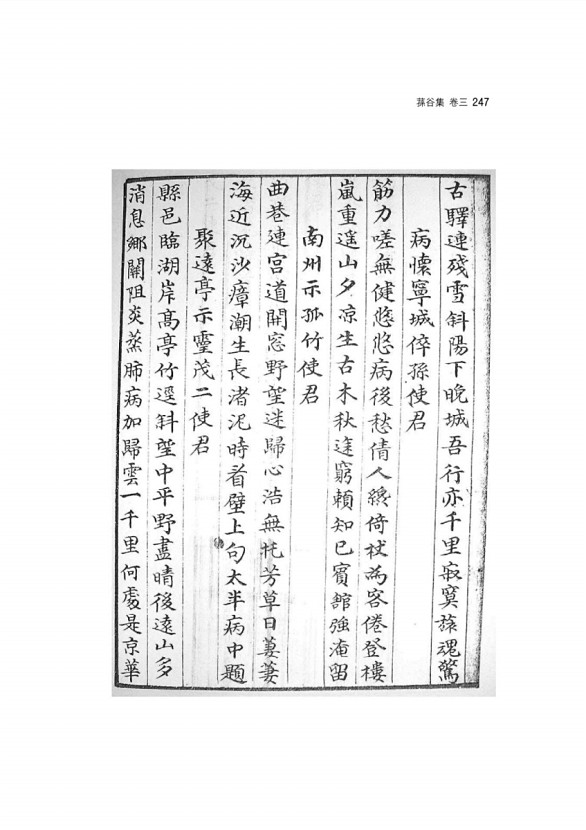 蓀谷集 卷三 247
古驛連殘雪斜陽下晚城吾行亦千里寂寞旅魂驚
病懷寧城倅孫使君
筋力嗟無健悠悠病後愁倩人纔倚杖爲客倦登樓
嵐重遥山夕凉生古木秋途窮賴知已賓舘強淹留
南州示孤竹使君
曲巷連宮道開窓野望迷歸心浩無托芳草日萋萋
海近沉沙瘴潮生長渚泥時看壁上句太半病中題
聚遠亭示靈茂二使君
縣邑臨湖岸髙亭竹逕斜望中平野盡晴後遠山多
消息鄉關阻炎蒸肺病加歸雲一千里何處是京華